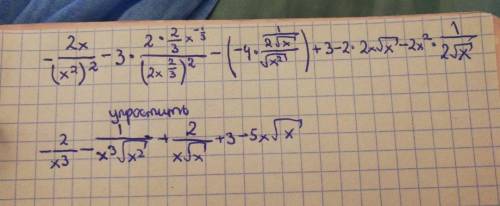 -\frac{2x}{(x^2)^2} - 3 \cdot \frac{2 \cdot \frac{2}{3} x^{-\frac{1}{3}}}{(2x^{\frac{2}{3}})^2} - \left(-4 \cdot \frac{\frac{1}{2\sqrt{x}}}{\sqrt{x^2}}\right) + 3 - 2 \cdot 2x\sqrt{x} - 2x^2 \cdot \frac{1}{2\sqrt{x}}
упростить
-\frac{2}{x^3} - \frac{1}{x^3\sqrt{x^2}} + \frac{2}{x\sqrt{x}} + 3 - 5x\sqrt{x}